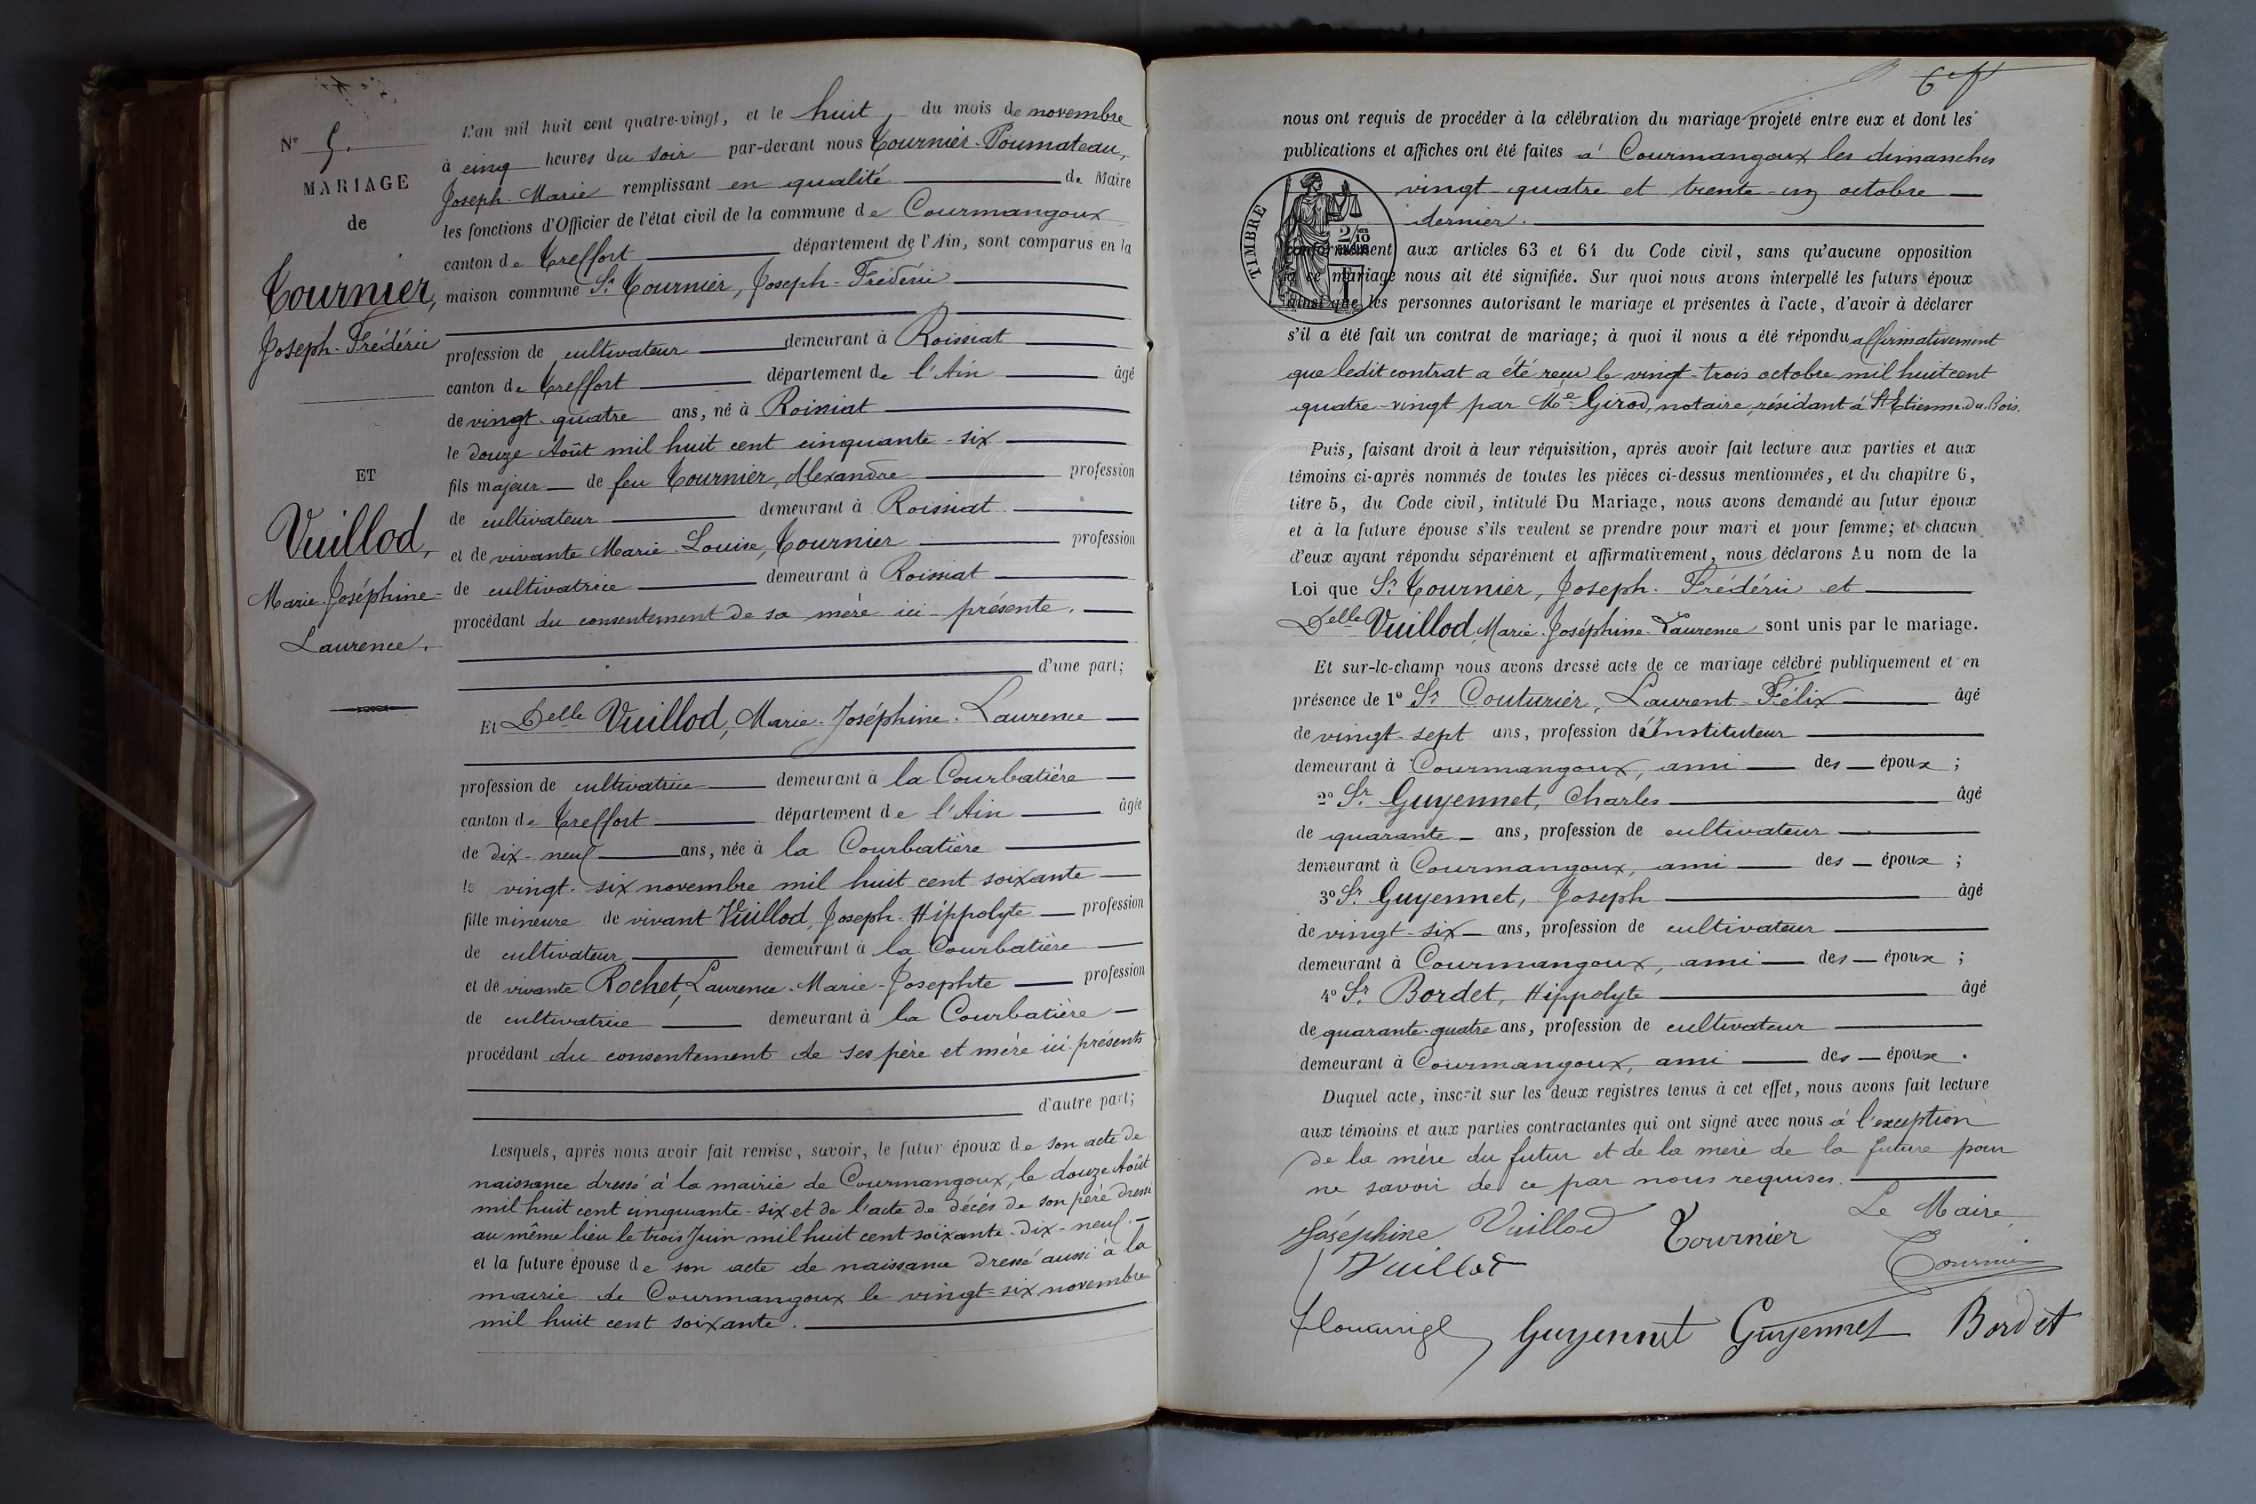 N° 5.
MARIAGE
de
Tournier,
Joseph-Frédéric
ET
Vuillod,
Marie-Joséphine-
Laurence.
L'an mil huit cent quatre-vingt, et le huit du mois de novembre
à cinq heures du soir par-devant nous Tournier-Poumateau,
Joseph-Marie remplissant en qualité de Maire
les fonctions d'Officier de l'état civil de la commune de Courmangoux
canton de Treffort département de l'Ain, sont comparus en la
maison commune Sr Tournier, Joseph-Frédéric
profession de cultivateur demeurant à Roissiat
canton de Treffort département de l'Ain âgé
de vingt-quatre ans, né à Roissiat
le douze Août mil huit cent cinquante-six
fils majeur de feu Tournier, Alexandre profession
de cultivateur demeurant à Roissiat
et de vivante Marie-Louise, Tournier profession
de cultivatrice demeurant à Roissiat
procédant du consentement de sa mère ici-présente.
d'une part;
Et Delle Vuillod, Marie-Joséphine-Laurence
profession de cultivatrice demeurant à la Courbatière
canton de Treffort département de l'Ain âgée
de dix-neuf ans, née à la Courbatière
le vingt-six novembre mil huit cent soixante
fille mineure de vivant Vuillod, Joseph-Hippolyte profession
de cultivateur demeurant à la Courbatière
et de vivante Rochet, Laurence-Marie-Josephte profession
de cultivatrice demeurant à la Courbatière
procédant du consentement de ses père et mère ici-présents
d'autre part;
Lesquels, après nous avoir fait remise, savoir, le futur époux de son acte de
naissance dressé à la mairie de Courmangoux, le douze Août
mil huit cent cinquante-six et de l'acte de décès de son père dressé
au même lieu le trois Juin mil huit cent soixante-dix-neuf.
et la future épouse de son acte de naissance dressé aussi à la
mairie de Courmangoux le vingt-six novembre
mil huit cent soixante.
nous ont requis de procéder à la célébration du mariage projeté entre eux et dont les
publications et affiches ont été faites à Courmangoux les dimanches
vingt-quatre et trente-un octobre
dernier.
TIMBRE
2/10
conformément aux articles 63 et 64 du Code civil, sans qu'aucune opposition
à ce mariage nous ait été signifiée. Sur quoi nous avons interpellé les futurs époux
ainsi que les personnes autorisant le mariage et présentes à l'acte, d'avoir à déclarer
s'il a été fait un contrat de mariage; à quoi il nous a été répondu affirmativement
que ledit contrat a été reçu le vingt-trois octobre mil huit cent
quatre-vingt par Me Girod, notaire, résidant à St Etienne-du-Bois.
Puis, faisant droit à leur réquisition, après avoir fait lecture aux parties et aux
témoins ci-après nommés de toutes les pièces ci-dessus mentionnées, et du chapitre 6,
titre 5, du Code civil, intitulé Du Mariage, nous avons demandé au futur époux
et à la future épouse s'ils veulent se prendre pour mari et pour femme; et chacun
d'eux ayant répondu séparément et affirmativement, nous déclarons Au nom de la
Loi que Sr Tournier, Joseph-Frédéric et
Delle Vuillod, Marie-Joséphine-Laurence sont unis par le mariage.
Et sur-le-champ nous avons dressé acte de ce mariage célébré publiquement et en
présence de 1° Sr Couturier, Laurent-Félix âgé
de vingt-sept ans, profession d'Instituteur
demeurant à Courmangoux, ami des époux;
2° Sr Guyennet, Charles âgé
de quarante ans, profession de cultivateur
demeurant à Courmangoux, ami des époux;
3° Sr Guyennet, Joseph âgé
de vingt-six ans, profession de cultivateur
demeurant à Courmangoux, ami des époux;
4° Sr Bordet, Hippolyte âgé
de quarante-quatre ans, profession de cultivateur
demeurant à Courmangoux, ami des époux.
Duquel acte, inscrit sur les deux registres tenus à cet effet, nous avons fait lecture
aux témoins et aux parties contractantes qui ont signé avec nous à l'exception
de la mère du futur et de la mère de la future pour
ne savoir de ce par nous requises.
Le Maire
Joséphine Vuillod Tournier Tournier
Vuillod
Guyennet Guyennet Bordet